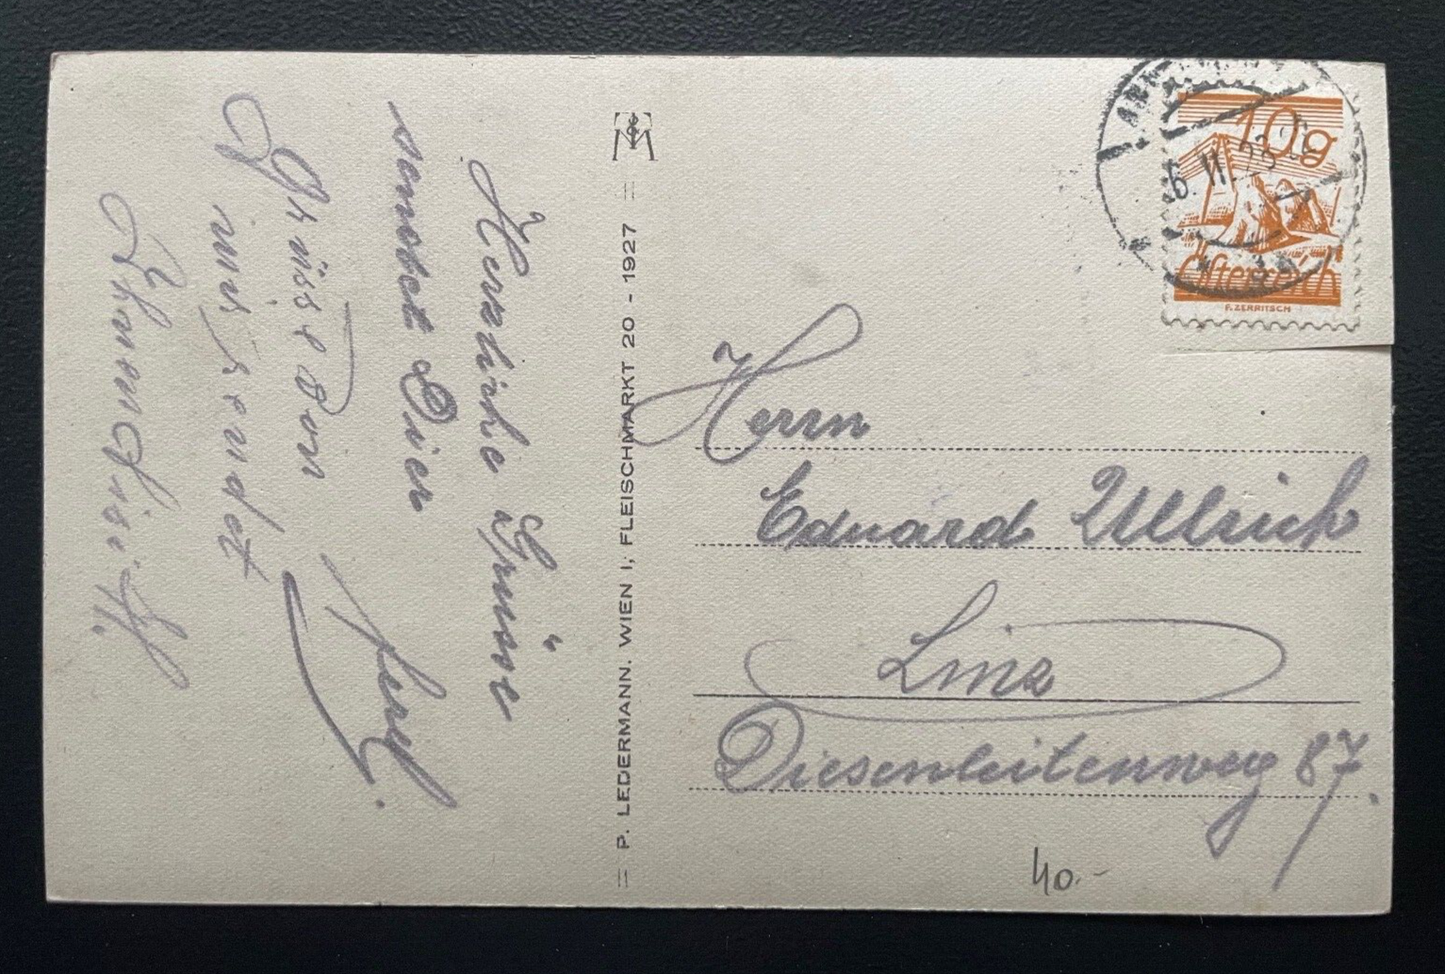 Herzliche Grüsse
sendet Dir
Ferd.
Grüsse von
mir sendet
P. LEDERMANN. WIEN I, FLEISCHMARKT 20 - 1927
10g
6. VI. 28
Österreich
F. ZERRITSCH
Herrn
Eduard Ullrich
Linz
Diesenleitenweg 87.
40.-